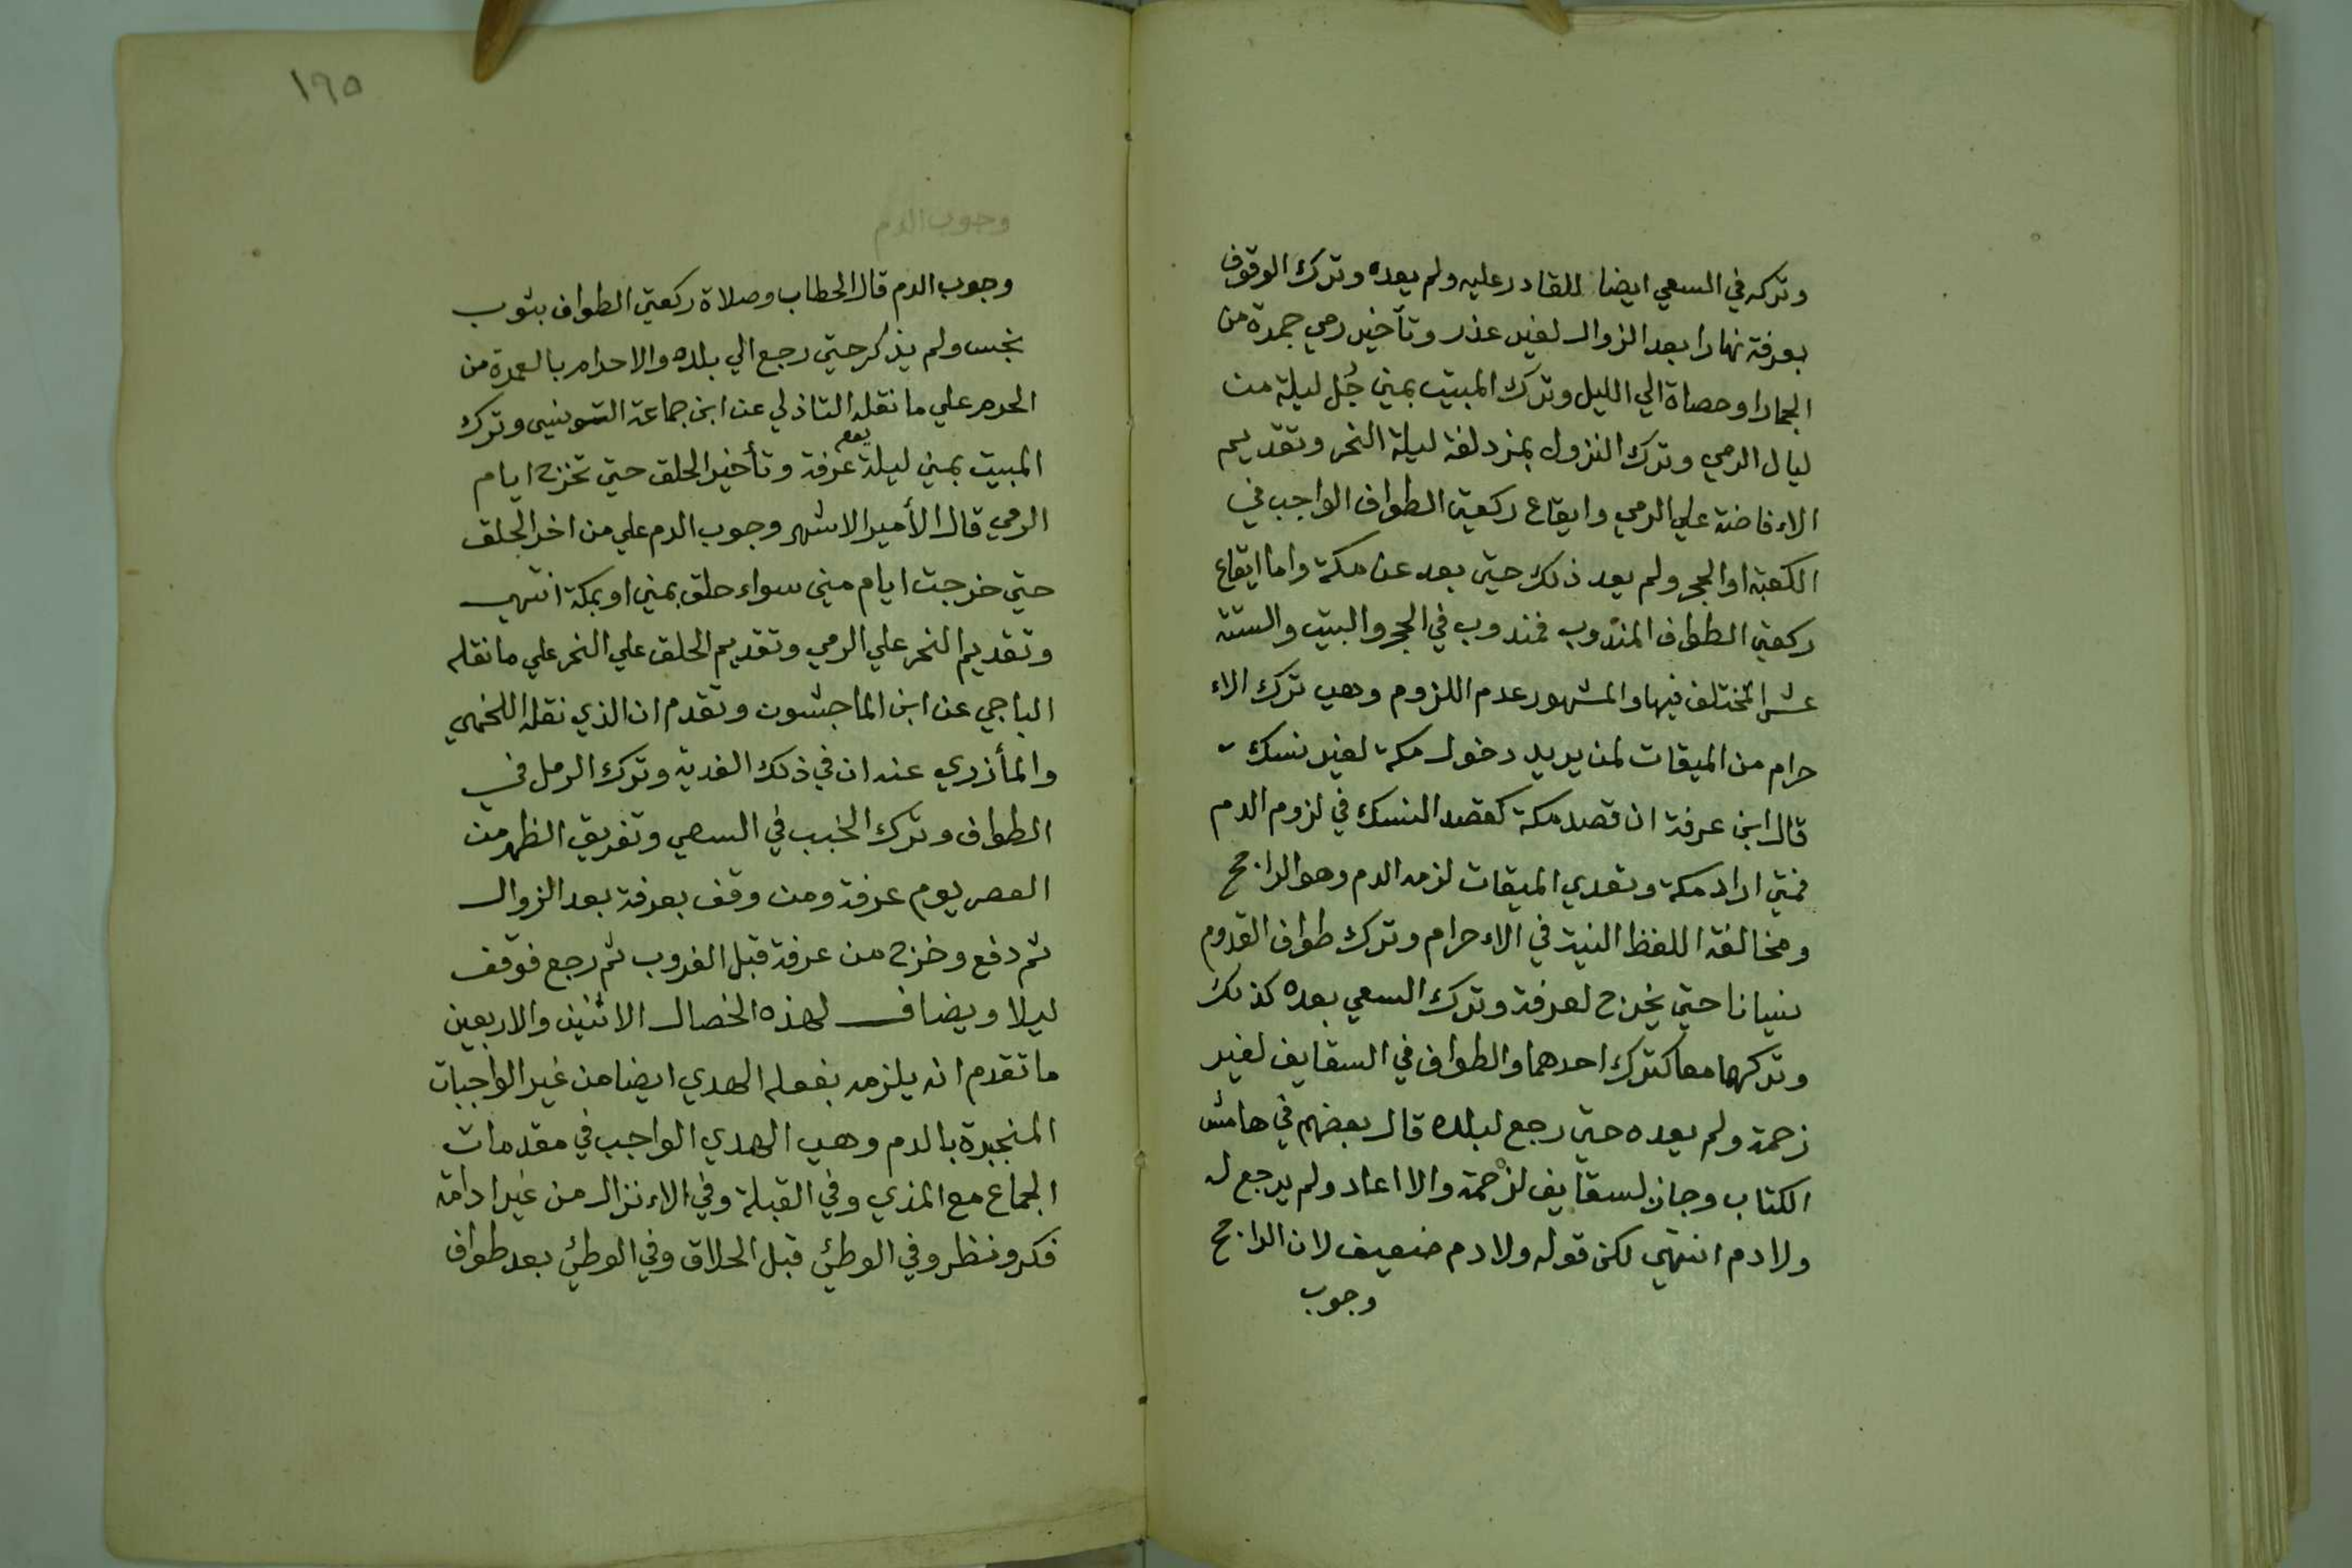 وتركه في السعي ايضا للقادر عليه ولم يعده وترك الوقوف
بعرفة نهارا بعد الزوال لغير عذر وتأخير رمي جمرة من
الجمار او حصاة الي الليل وترك المبيت بمني جُل ليلة من
ليال الرمي وترك النزول بمزدلفة ليلة النحر وتقديم
الاء فاضة علي الرمي وايقاع ركعتي الطواف الواجب في
الكعبة او الحجر ولم يعد ذلك حتي بعد عن مكة واما ايقاع
ركعتي الطواف المندوب فمندوب في الحجر والبيت والستة
عشر المختلف فيها والمشهور عدم اللزوم وهي ترك الاء
حرام من الميقات لمن يريد دخول مكة لغير نسك
قال ابن عرفة ان قصد مكة كقصد النسك في لزوم الدم
فمتي اراد مكة وتعدي الميقات لزمه الدم وهو الراجح
ومخالفة اللفظ النية في الاء حرام وترك طواف القدوم
نسيانا حتي يخرج لعرفة وترك السعي بعده كذلك
وتركهما معا كترك احدهما والطواف في السقايف لغير
زحمة ولم يعده حتي رجع لبلده قال بعضهم في هامش
الكتاب وجاز بسقايف لزحمة والا اعاد ولم يرجع له
ولا دم انتهي لكن قوله ولا دم ضعيف لان الراجح
وجوب
١٩٥
وجوب الدم
وجوب الدم قال الحطاب وصلاة ركعتي الطواف بثوب
نجس ولم يذكر حتي رجع الي بلده والاحرام بالعمرة من
الحرم علي ما نقله التاذلي عن ابن جماعة التونسي وترك
المبيت بمني ليلة يوم عرفة وتأخير الحلق حتي تخرج ايام
الرمي قال الأمير الاشهر وجوب الدم علي من اخر الحلق
حتي خرجت ايام مني سواء حلق بمني او بمكة انتهي
وتقديم النحر علي الرمي وتقديم الحلق علي النحر علي ما نقله
الباجي عن ابن الماجشون وتقدم ان الذي نقله اللخمي
والمأزري عنه ان في ذلك الفدية وترك الرمل في
الطواف وترك الخبب في السعي وتفريق الظهر من
العصر يوم عرفة ومن وقف بعرفة بعد الزوال
ثم دفع وخرج من عرفة قبل الغروب ثم رجع فوقف
ليلا ويضاف لهذه الخصال الاثنين والاربعين
ما تقدم انه يلزمه بفعله الهدي ايضا من غير الواجبات
المنجبرة بالدم وهي الهدي الواجب في مقدمات
الجماع مع المذي وفي القبلة وفي الاء نزال من غير ادامة
فكر ونظر وفي الوطئ قبل الحلاق وفي الوطئ بعد طواف